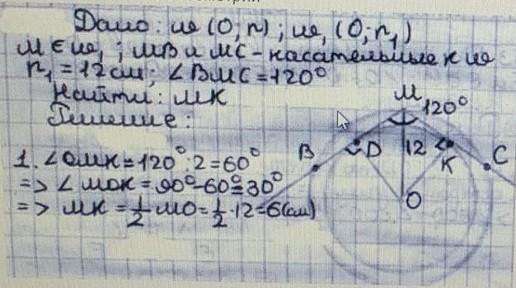 Дано: ω (O; r); ω₁ (O; r₁)
M ∈ ω₁; MB и MC - касательные к ω
r₁ = 12 см; ∠BMC = 120°
Найти: MK
Решение:
M
120°
1. ∠OMK = 120° : 2 = 60°
B
D
12
K
C
=> ∠MOK = 90° - 60° = 30°
O
=> MK = 1/2 MO = 1/2 · 12 = 6 (см)